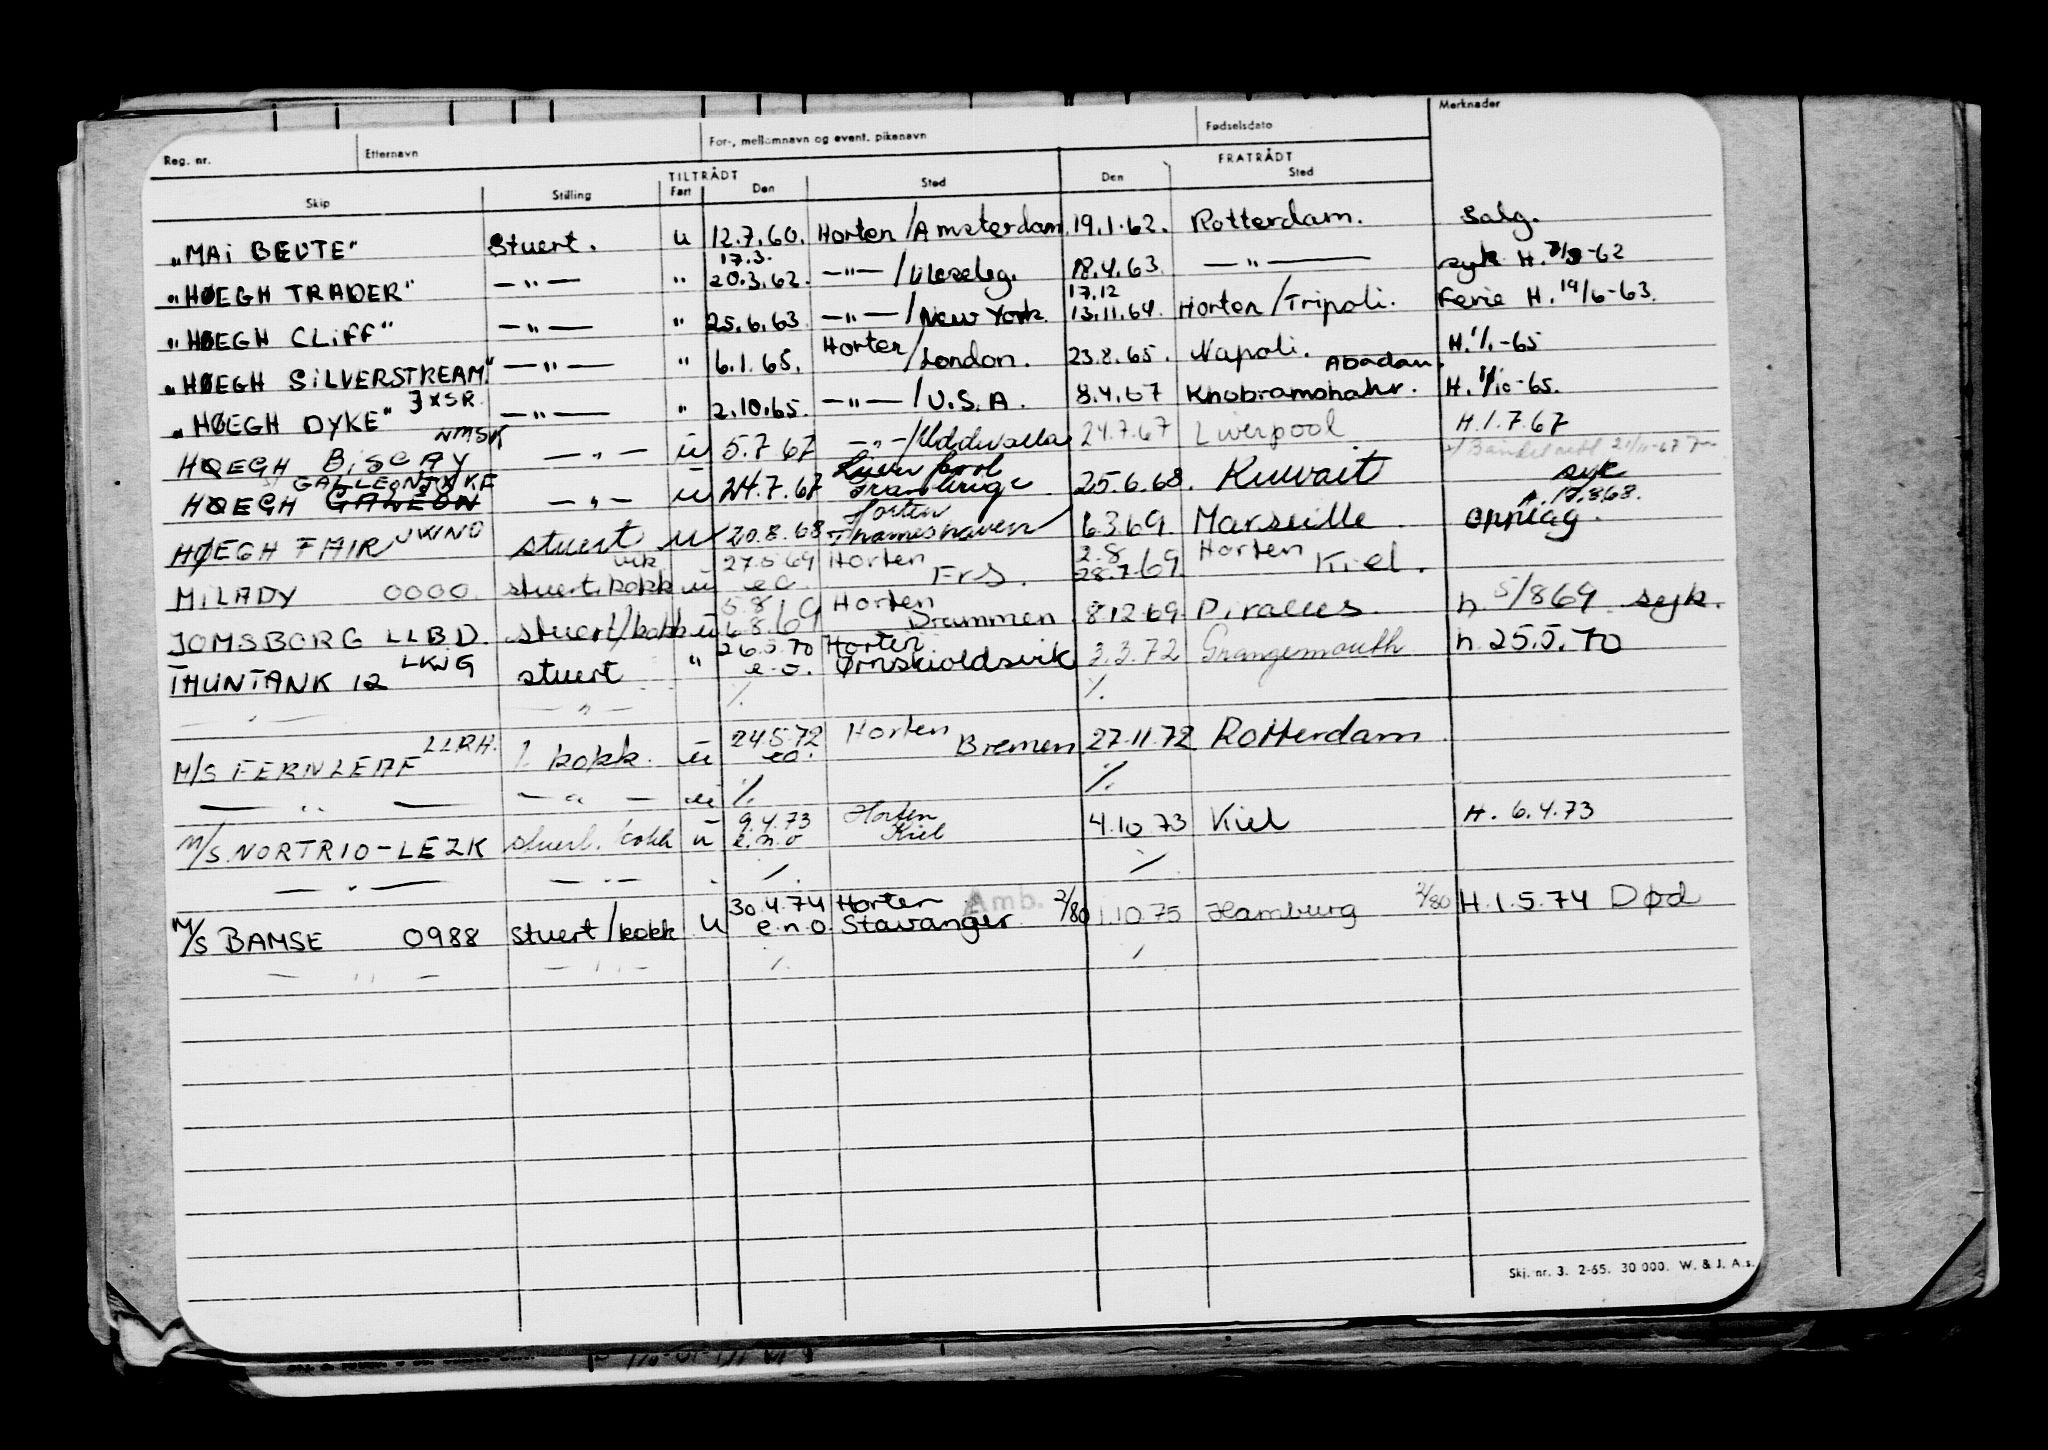 Reg. nr. Etternavn For-, mellomnavn og event. pikenavn Fødselsdato Merknader
TILTRÅDT FRATRÅDT
Skip Stilling Fart Den Sted Den Sted
"MAI BEUTE" Stuert. u 12.7.60. Horten/Amsterdam 19.1.62. Rotterdam. Salg.
17.3.
"HØEGH TRADER" —"— " 20.3.62. —"— 18.4.63. —"— syk H. -62
17.12
"HØEGH CLIFF" —"— " 25.6.63. —"—/New York. 13.11.64. Horten/Tripoli. Ferie H. 19/6-63.
"HØEGH SILVERSTREAM" —"— " 6.1.65. Horten/London. 23.8.65. Napoli. H. -65
Abadan.
"HØEGH DYKE" JXSR. —"— " 2.10.65. —"—/U.S.A. 8.4.67 H. /10-65.
NMSK
HØEGH BISCAY —"— u 5.7.67 —"—/Uddevalla 24.7.67 Liverpool H.1.7.67
GALLEON JXKF Liverpool syk
HØEGH GALEON —"— u 24.7.67 25.6.68. Kuwait H.17.8.68.
Horten
HØEGH FAIR stuert u 20.8.68 Thameshaven 6.3.69. Marseille opplag.
27.5.69 Horten 2.8 Horten
MILADY 0000. stuert.kokk u eo Frs. 28.7.69. Kiel.
5.8.69 Horten
JOMSBORG LLBD. stuert/kokk u 6.8.69 Drammen 8.12.69. Piraeus. h. 5/8 69 syk.
LKJG 26.5.70 Horten
THUNTANK 12 stuert " e.o. Ørnskioldsvik 3.3.72 Grangemouth h. 25.5.70
—"— —"— %. %.
LLRH. 24.5.72 Horten
M/S FERNLEAF 1. kokk. u eo. Bremen 27.11.72 Rotterdam
—"— —"— u %. %.
9.4.73 Horten
M/S NORTRIO-LEZK stuert. kokk u e.n.o Kiel 4.10.73 Kiel H. 6.4.73
—"— —"— %. %
30.4.74 Horten Amb. 2/80 2/80
M/S BAMSE 0988 stuert/kokk u e.n.o. Stavanger 1.10.75 Hamburg H.1.5.74 Død
—"— —"— %. %
Skj. nr. 3. 2-65. 30 000. W. & J. A.s.